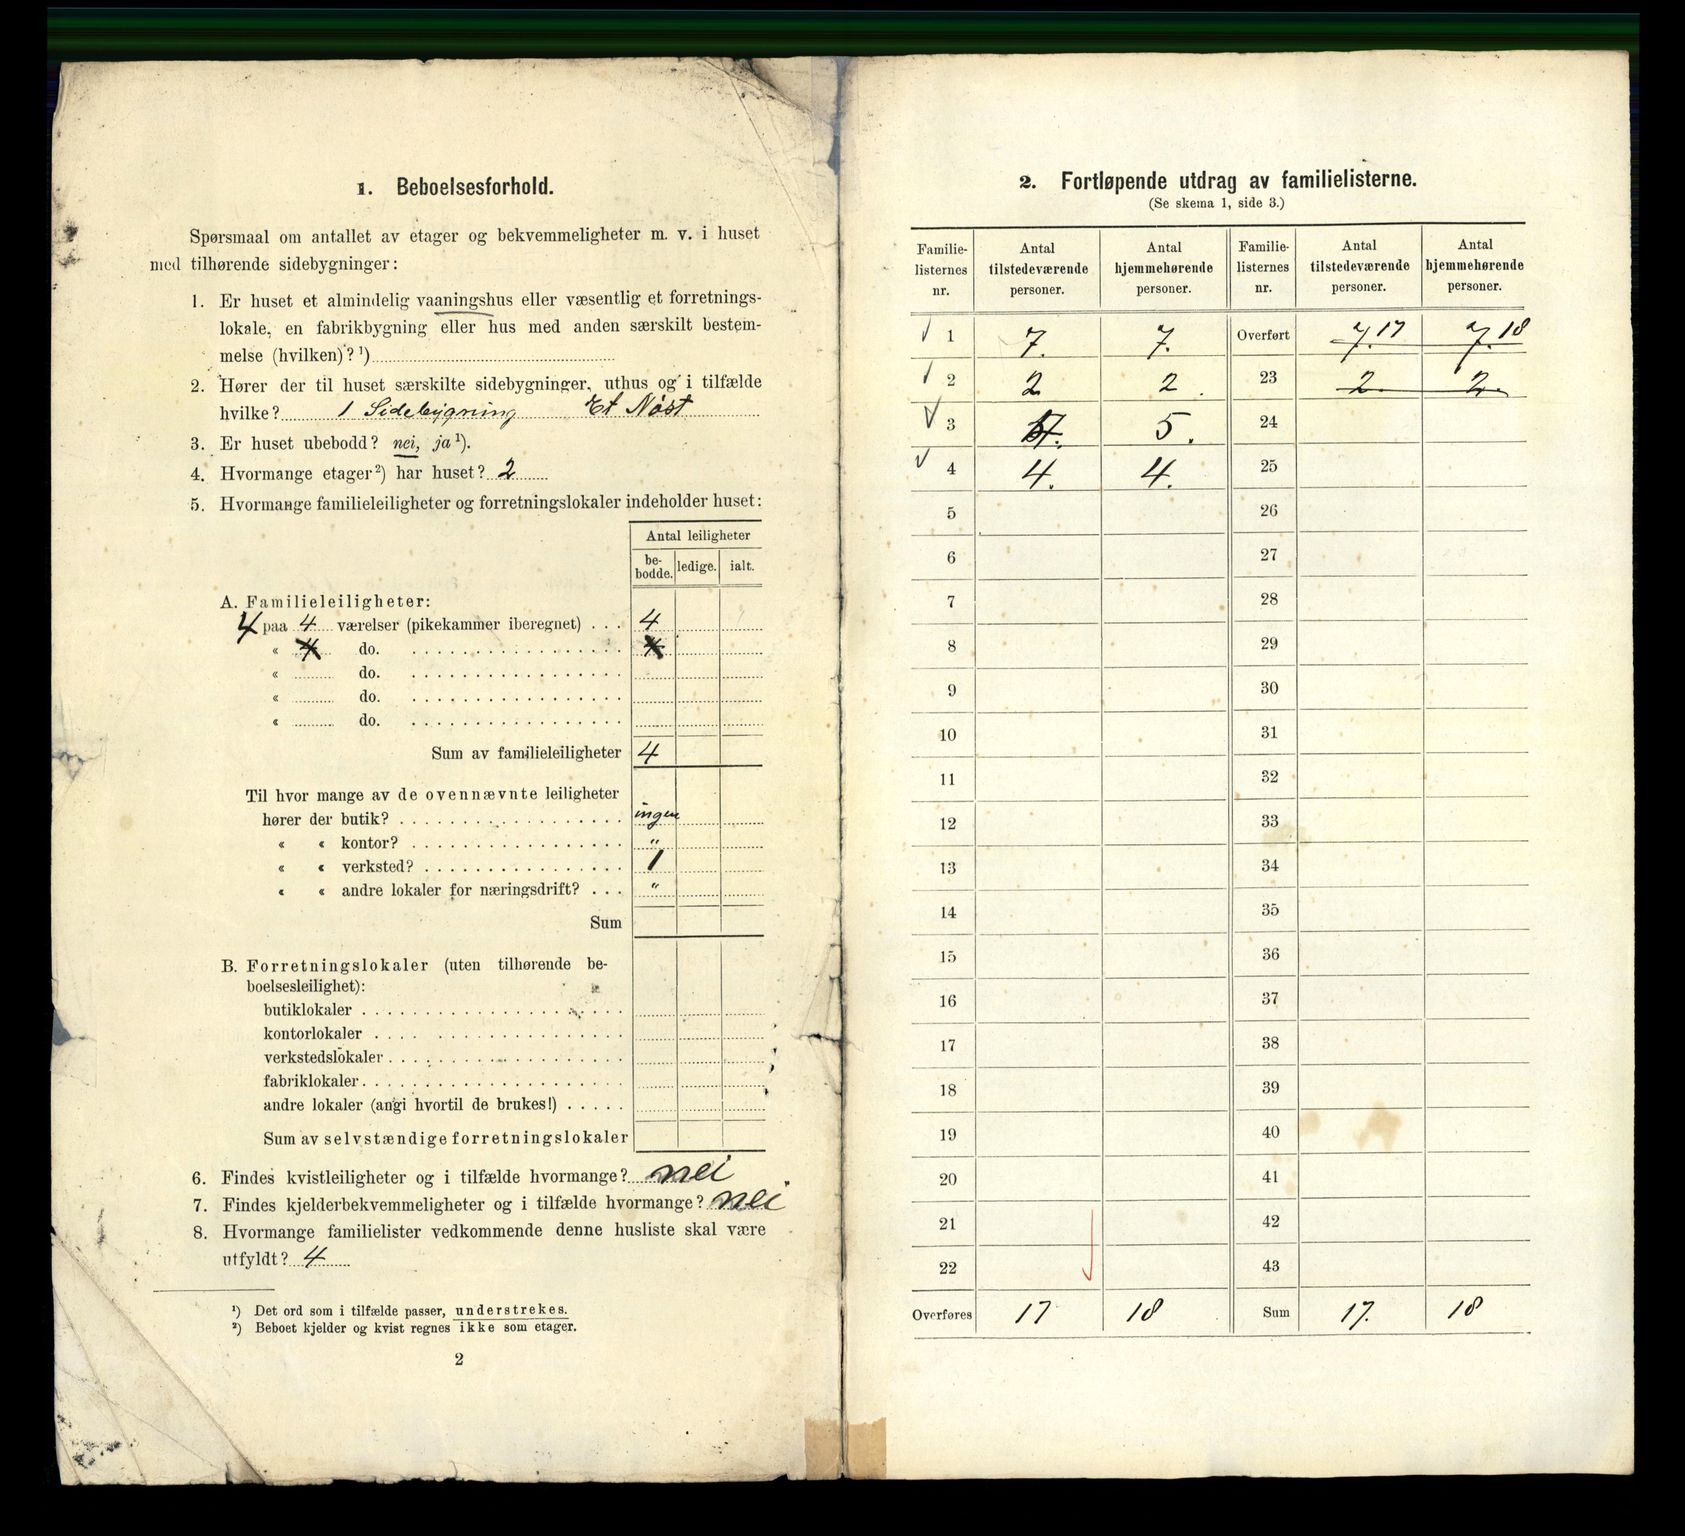 1. Beboelsesforhold.
Spørsmaal om antallet av etager og bekvemmeligheter m. v. i huset
med tilhørende sidebygninger:
1. Er huset et almindelig vaaningshus eller væsentlig et forretnings-
lokale, en fabrikbygning eller hus med anden særskilt bestem-
melse (hvilken)? ¹)
2. Hører der til huset særskilte sidebygninger, uthus og i tilfælde
hvilke? 1 Sidebygning Et Nøst
3. Er huset ubebodd? nei, ja ¹).
4. Hvormange etager ²) har huset? 2
5. Hvormange familieleiligheter og forretningslokaler indeholder huset:
Antal leiligheter
be-bodde. ledige. ialt.
A. Familieleiligheter:
4 paa 4 værelser (pikekammer iberegnet) . . . 4
« 4 do. 4
« do.
« do.
« do.
Sum av familieleiligheter 4
Til hvor mange av de ovennævnte leiligheter
hører der butik? ingen
« « kontor? "
« « verksted? 1
« « andre lokaler for næringsdrift? . . . "
Sum
B. Forretningslokaler (uten tilhørende be-
boelsesleilighet):
butiklokaler
kontorlokaler
verkstedslokaler
fabriklokaler
andre lokaler (angi hvortil de brukes!)
Sum av selvstændige forretningslokaler
6. Findes kvistleiligheter og i tilfælde hvormange? nei
7. Findes kjelderbekvemmeligheter og i tilfælde hvormange? nei
8. Hvormange familielister vedkommende denne husliste skal være
utfyldt? 4
¹) Det ord som i tilfælde passer, understrekes.
²) Beboet kjelder og kvist regnes ikke som etager.
2
2. Fortløpende utdrag av familielisterne.
(Se skema 1, side 3.)
Familie-listernes nr. Antal tilstedeværende personer. Antal hjemmehørende personer. Familie-listernes nr. Antal tilstedeværende personer. Antal hjemmehørende personer.
✓ 1 7. 7. Overført 7. 17 7. 18
✓ 2 2 2. 23 2. 2.
✓ 3 4. 5. 24
✓ 4 4. 4. 25
5 26
6 27
7 28
8 29
9 30
10 31
11 32
12 33
13 34
14 35
15 36
16 37
17 38
18 39
19 40
20 41
21 42
22 43
Overføres 17 18 Sum 17. 18